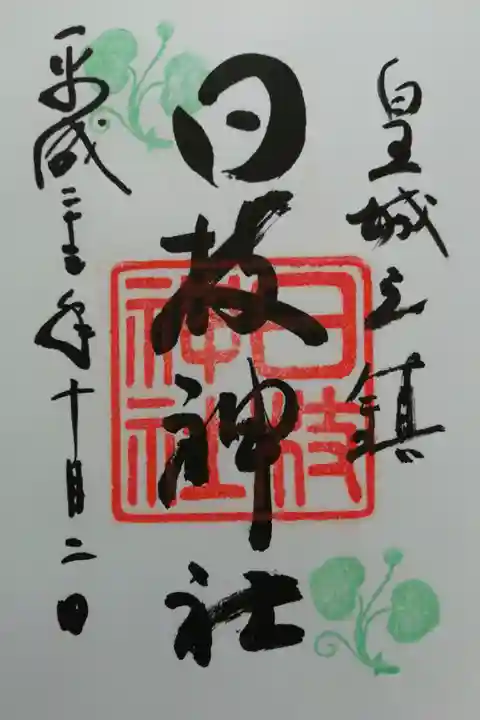 皇城之鎮
日枝神社
日枝
神社
平成二十三年十月二日